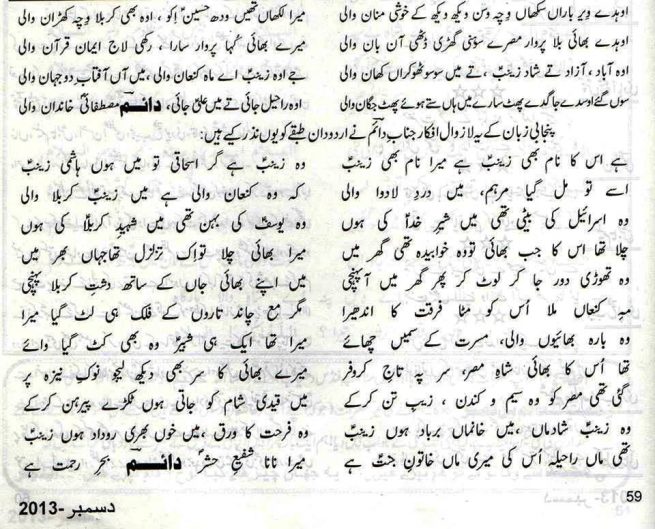 اوہدے ویر باراں سکھاں وچہ وسن ویکھ ویکھ کے خوشی منان والی میرا لکھاں تھیں ودھ حسینؑ اِکو، اوہ بھی کربلا وچہ کھڑان والی
اوہدے بھائی بلا پروار مصرے سوہنی گھڑی ڈٹھی آن بان والی میرے بھائی کُہا پروار سارا، رکھی لاج ایمان قرآن والی
اوہ آباد، آزاد تے شاد زینبؑ، تے میں سو سو ٹھوکراں کھان والی جے اوہ زینبؑ اے ماہ کنعان والی، میں آں آفتاب دو جہان والی
سوں گئے اوسدے جاگدے پھٹ سارے میں ہاں ستے ہوئے پھٹ جگان والی اوہ راحیل جائی تے میں علیؑ جائی، دائمؔ مصطفائی خاندان والی
پنجابی زبان کے یہ لازوال افکار جناب دائمؔ نے اردو دان طبقے کو یوں نذر کیے ہیں:
ہے اس کا نام بھی زینبؑ ہے میرا نام بھی زینبؑ وہ زینبؑ ہے گر اسحاقی تو میں ہوں ہاشمی زینبؑ
اسے تو مل گیا مرہم، میں دردِ لادوا والی کہ وہ کنعان والی ہے میں زینبؑ کربلا والی
وہ اسرائیل کی بیٹی تھی میں شیرِ خداؑ کی ہوں وہ یوسفؑ کی بہن تھی میں شہیدِ کربلاؑ کی ہوں
چلا تھا اس کا جب بھائی تو وہ خوابیدہ تھی گھر میں میرا بھائی چلا تو اِک تزلزل تھا جہاں بھر میں
وہ تھوڑی دور جا کر لوٹ کر پھر گھر میں آ پہنچی میں اپنے بھائی جاں کے ساتھ دشتِ کربلا پہنچی
مہِ کنعاں ملا اُس کو مٹا فرقت کا اندھیرا مگر مع چاند تاروں کے فلک ہی لٹ گیا میرا
وہ بارہ بھائیوں والی، مسرت کے سمیں چھائے میرا تھا ایک ہی شبیرؑ وہ بھی کٹ گیا وائے
تھا اُس کا بھائی شاہِ مصر، سر پہ تاجِ کروفر میرے بھائی کا سر بھی دیکھ لیجو نوکِ نیزہ پر
گئی تھی مصر کو وہ سیم و کندن، زیبِ تن کر کے میں قیدی شام کو جاتی ہوں ٹکڑے پیرہن کر کے
وہ زینبؑ شادماں، میں خانماں برباد ہوں زینبؑ وہ فرحت کا ورق، میں خوں بھری روداد ہوں زینبؑ
تھی ماں راحیلہ اُس کی میری ماں خاتونِ جنتؑ ہے میرا نانا شفیعِ حشرؐ دائمؔ بحرِ رحمت ہے
59
دسمبر-2013